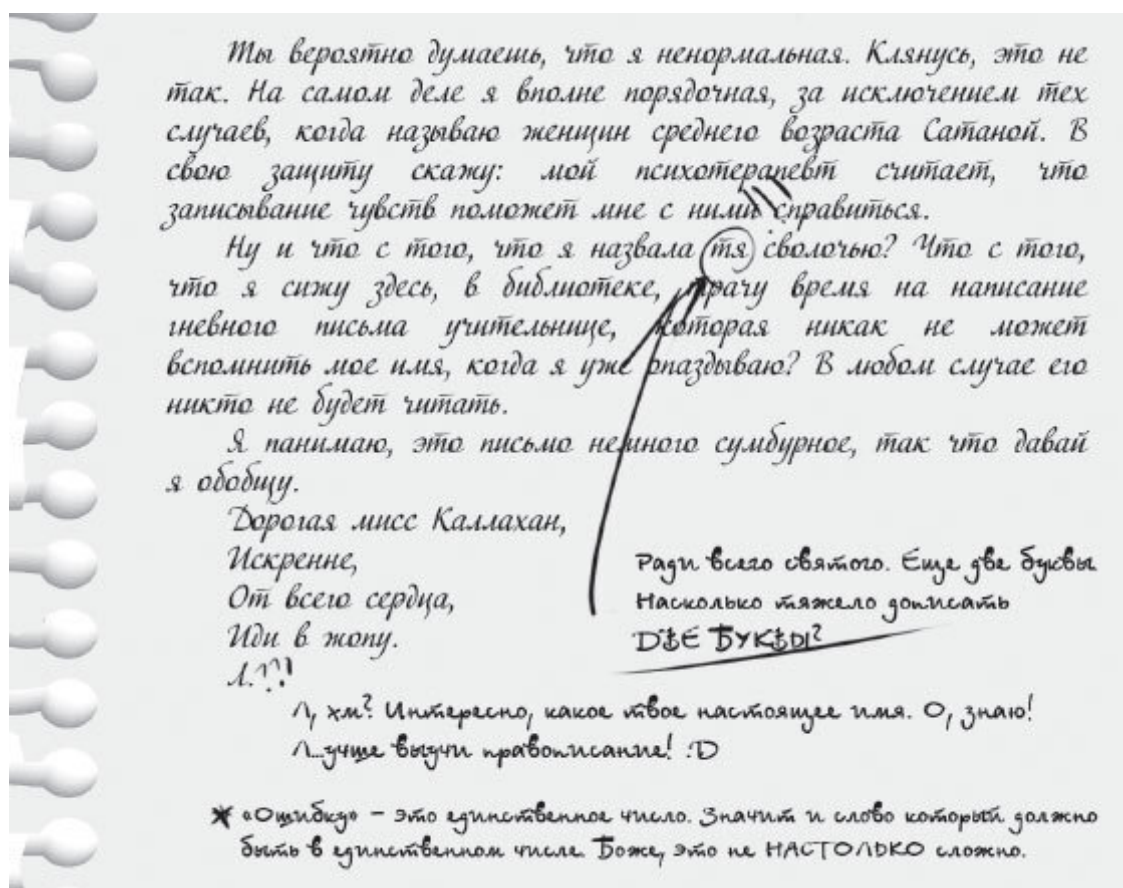 Ты вероятно думаешь, что я ненормальная. Клянусь, это не
так. На самом деле я вполне порядочная, за исключением тех
случаев, когда называю женщин среднего возраста Сатаной. В
свою защиту скажу: мой психотерапевт считает, что
записывание чувств поможет мне с ними справиться.
Ну и что с того, что я назвала тя сволочью? Что с того,
что я сижу здесь, в библиотеке, трачу время на написание
гневного письма учительнице, которая никак не может
вспомнить мое имя, когда я уже опаздываю? В любом случае его
никто не будет читать.
Я панимаю, это письмо немного сумбурное, так что давай
я обобщу.
Дорогая мисс Каллахан,
Искренне,
От всего сердца,
Иди в жопу.
Л.??!
Ради всего святого. Еще две буквы
Насколько тяжело дописать
ДВЕ БУКВЫ?
Л, хм? Интересно, какое твое настоящее имя. О, знаю!
Л...учше выучи правописание! :D
* «Ошибку» – это единственное число. Значит и слово который должно
быть в единственном числе. Боже, это не НАСТОЛЬКО сложно.